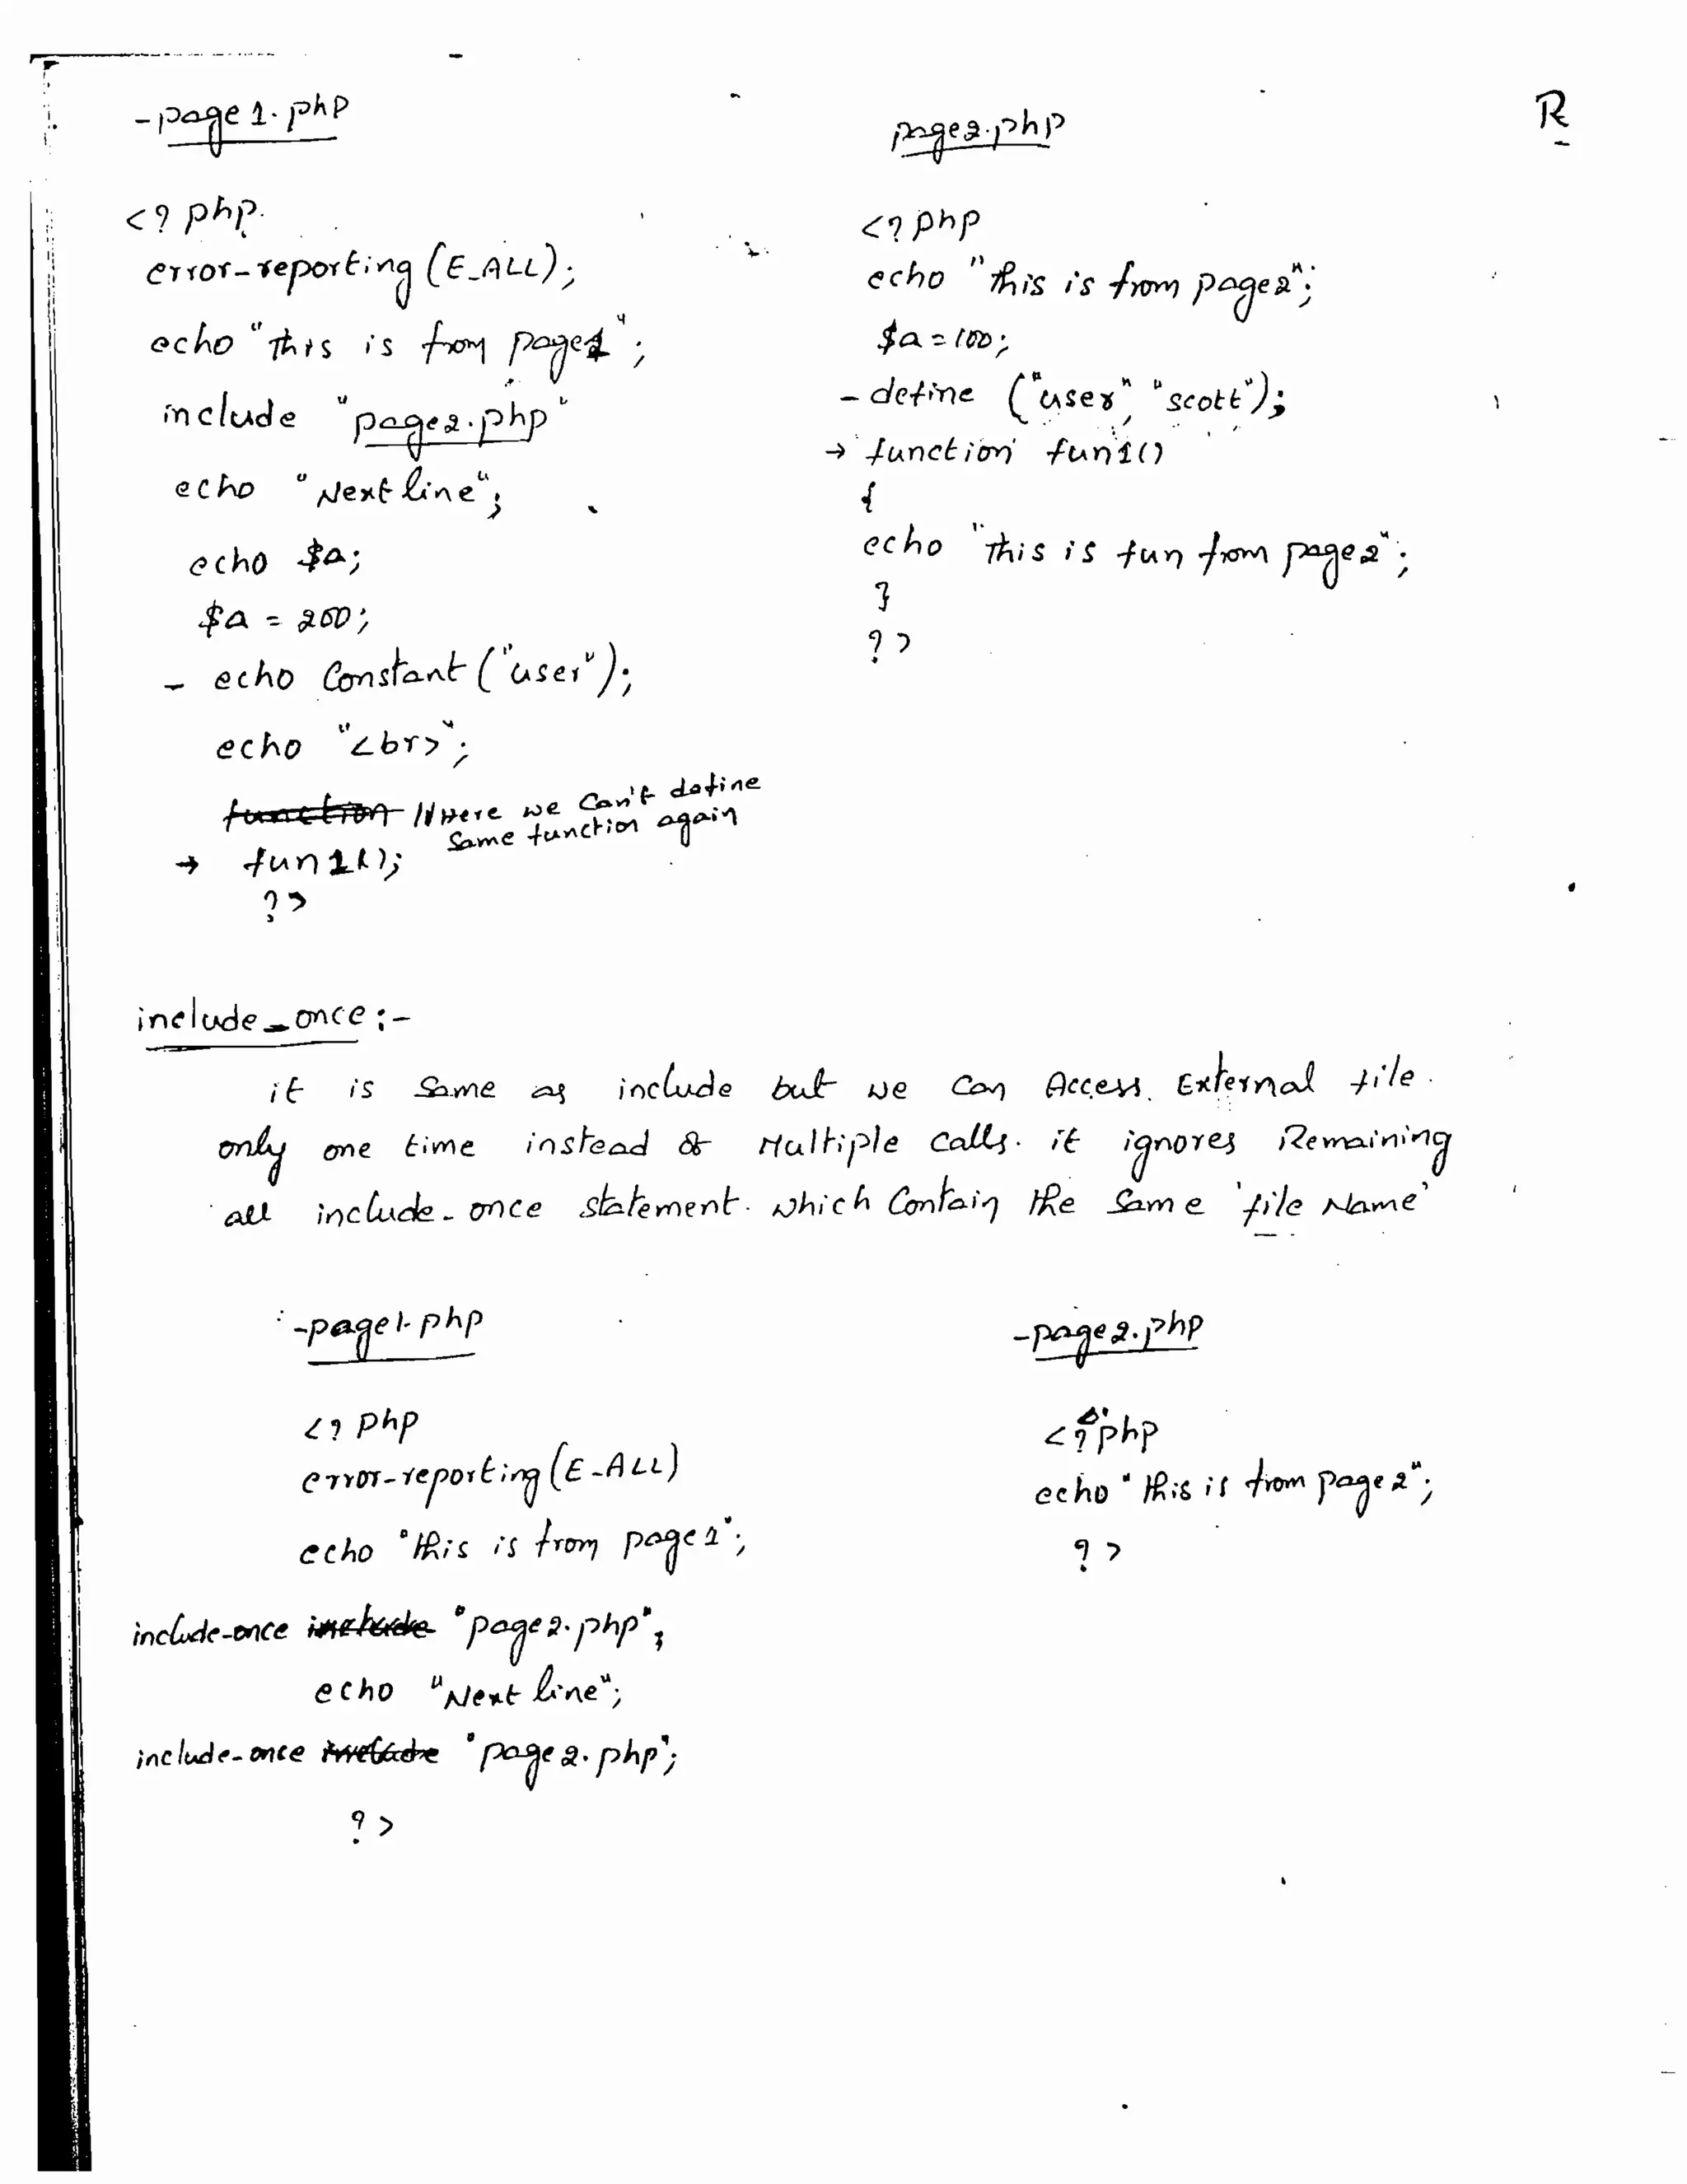 -page1.php
<?php.
error-reporting(E_ALL);
echo "This is from page1";
include "page2.php"
echo "Next line";
echo $a;
$a = 200;
- echo Constant("user");
echo "<br>";
function //Here we Can't define
Same function again
→ fun1();
?>
page2.php
<?php
echo "This is from page2";
$a=100;
- define ("user", "scott");
→ function fun1()
{
echo "This is fun from page2";
}
?>
R
include_once :-
it is Same as include but we Can Access. External file.
only one time instead of Multiple Calls. it ignores Remaining
all include-once statement. which Contain the Same 'file Name'
-page1.php
<?php
error-reporting(E-ALL)
echo "this is from page1";
include-once include "page2.php";
echo "Next line";
include-once include "page2.php";
?>
-page2.php
<?php
echo "this is from page2";
?>